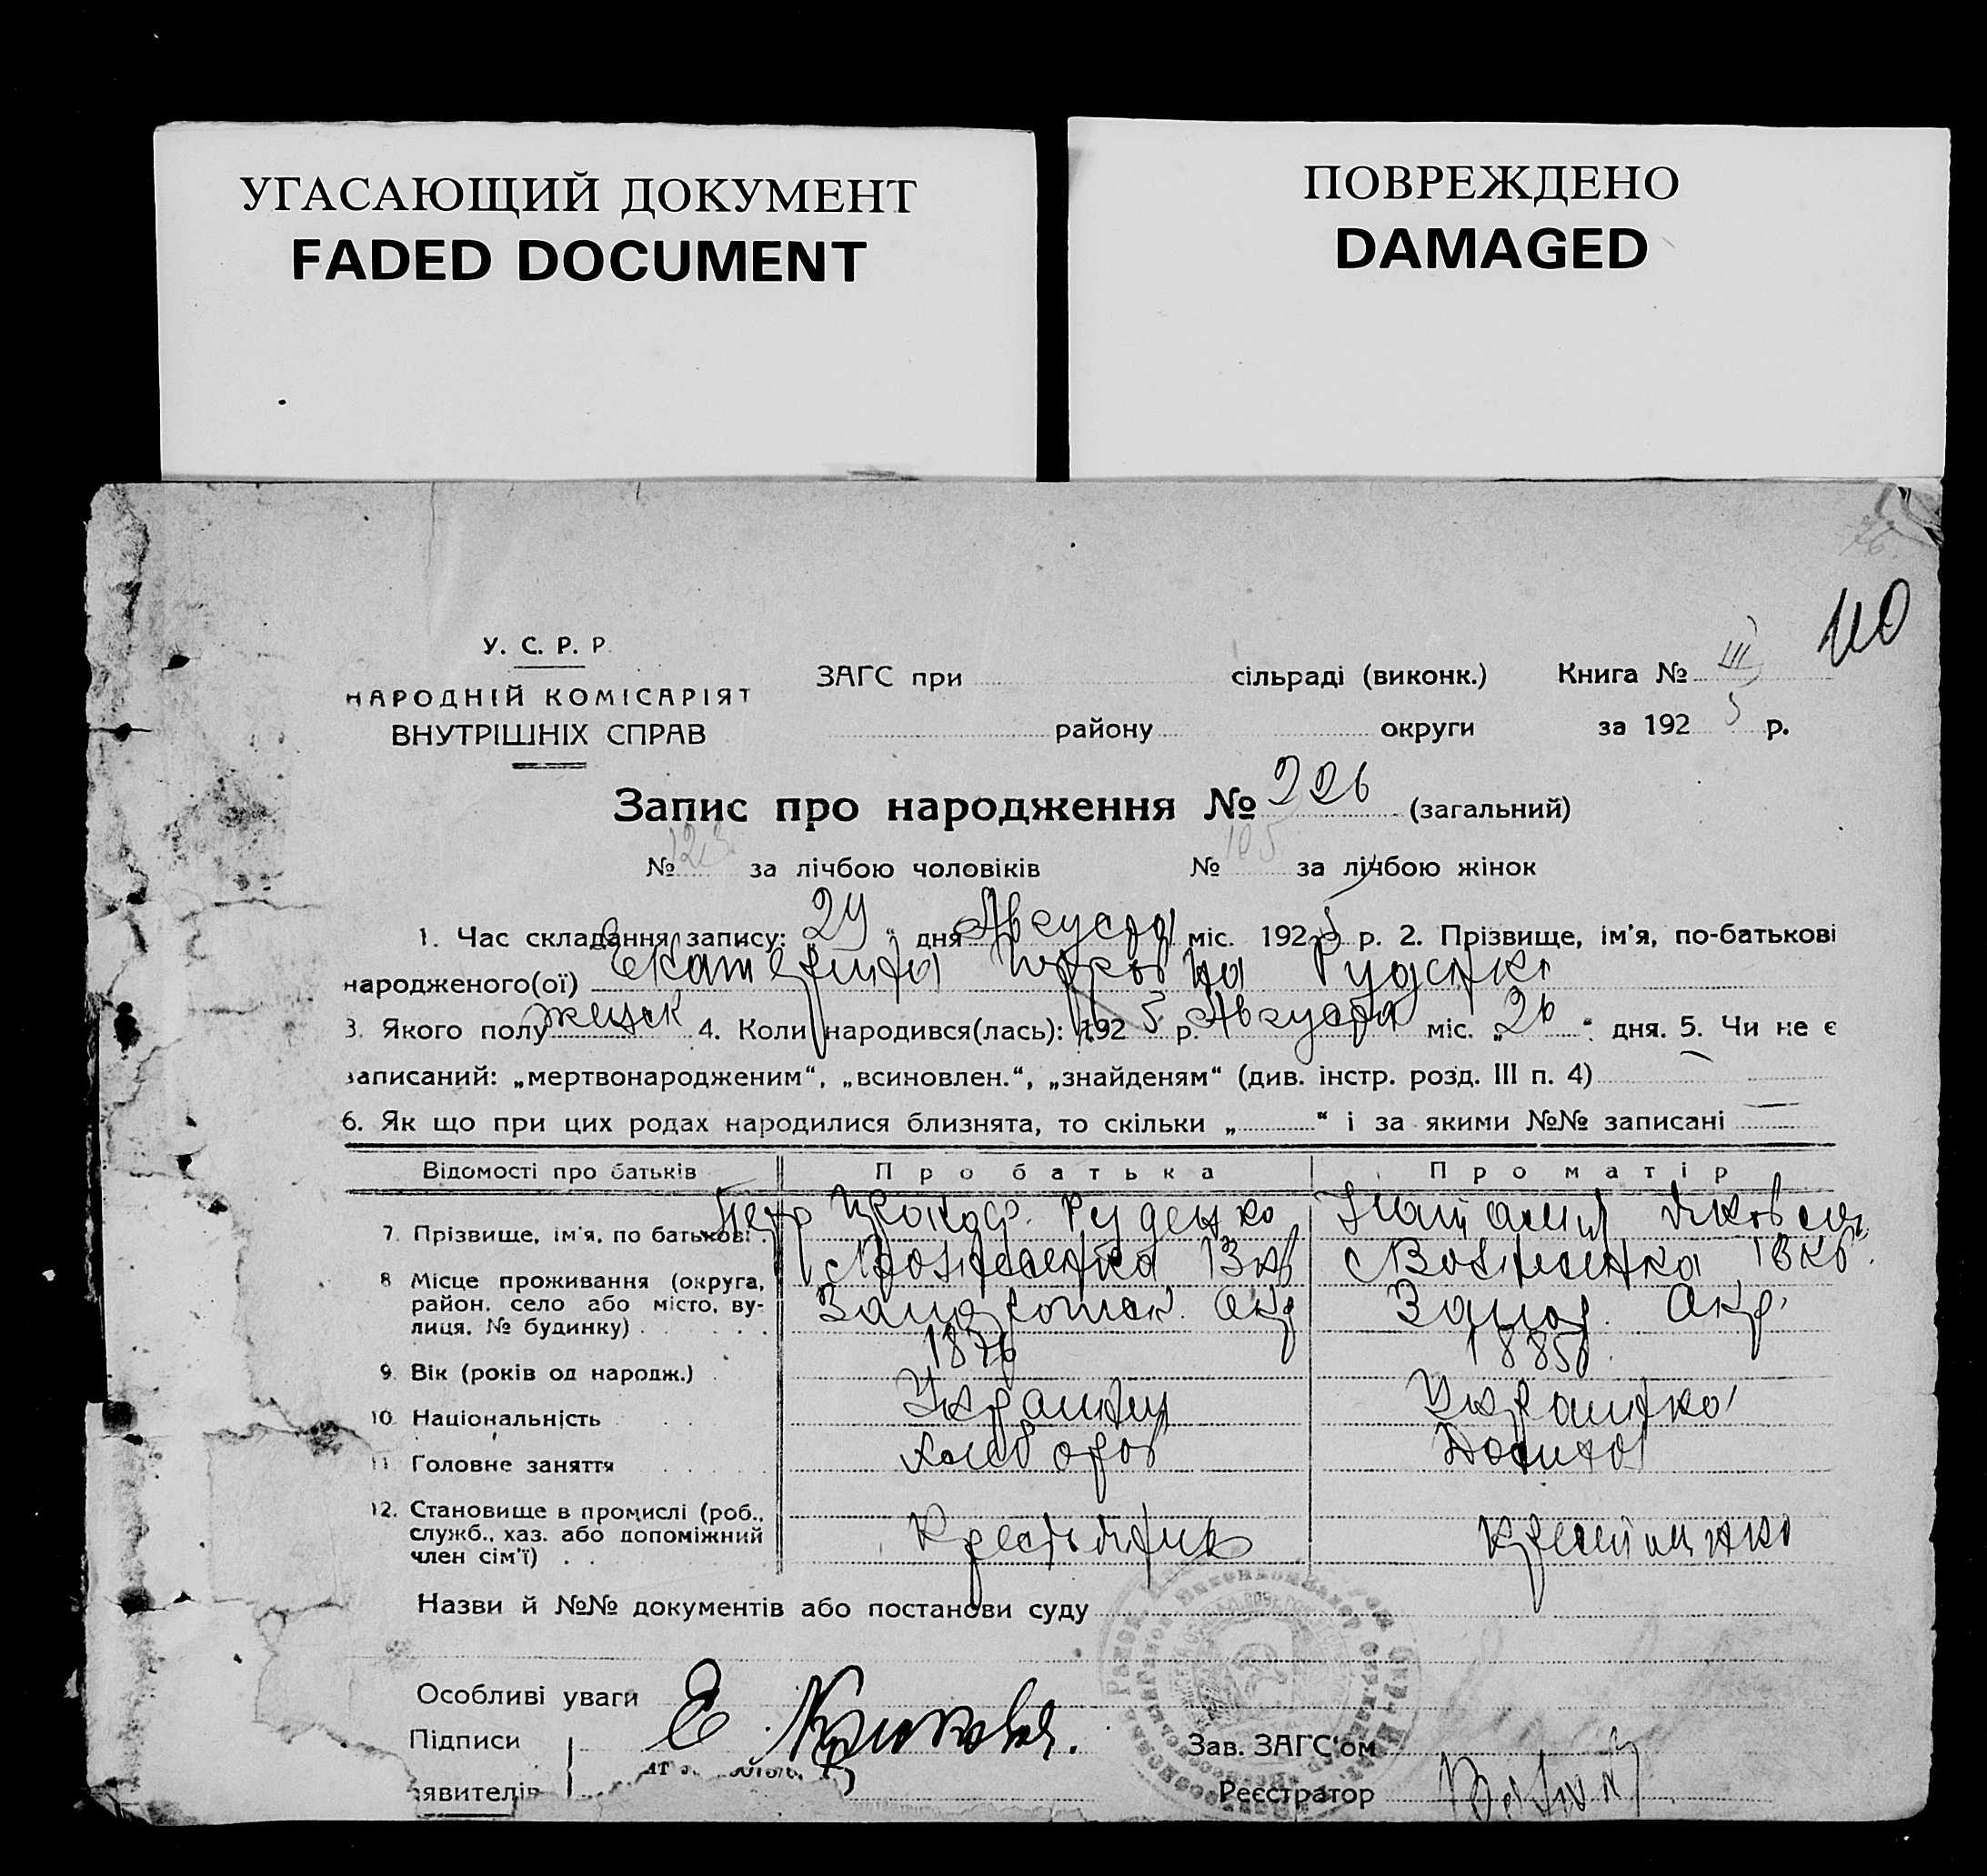 УГАСАЮЩИЙ ДОКУМЕНТ
FADED DOCUMENT
ПОВРЕЖДЕНО
DAMAGED
110
У. С. Р. Р.
НАРОДНІЙ КОМІСАРІЯТ
ВНУТРІШНІХ СПРАВ
ЗАГС при сільраді (виконк.) Книга № III
району округи за 1925 р.
Запис про народження № 226 (загальний)
№ 123 за лічбою чоловіків № 105 за лічбою жінок
1. Час складання запису: 29 " дня Августа міс. 1925 р. 2. Прізвище, ім'я, по-батькові
народженого(ої) Екатерина Петровна Руденко
3. Якого полу женск 4. Коли народився(лась): 1925 р. Августа міс. „26“ дня. 5. Чи не є
записаний: „мертвонародженим“, „всиновлен.“, „знайденям“ (див. інстр. розд. III п. 4)
6. Як що при цих родах народилися близнята, то скільки „ “ і за якими №№ записані
Відомості про батьків Про батька Про матір
7. Прізвище, ім'я, по батькові Петр Руденко Наталия Яковл
8 Місце проживання (округа, район, село або місто, вулиця, № будинку) Запорожск. Окр Запор. Окр.
9. Вік (років од народж.) 1876 1885
10. Національність Украинец Украинка
11. Головне заняття хлебороб
12. Становище в промислі (роб., служб., хаз. або допоміжний член сім'ї) Крестьянин крестьянка
Назви й №№ документів або постанови суду
Особливі уваги
Підписи
явителів
Е.
Зав. ЗАГС'ом
Реєстратор